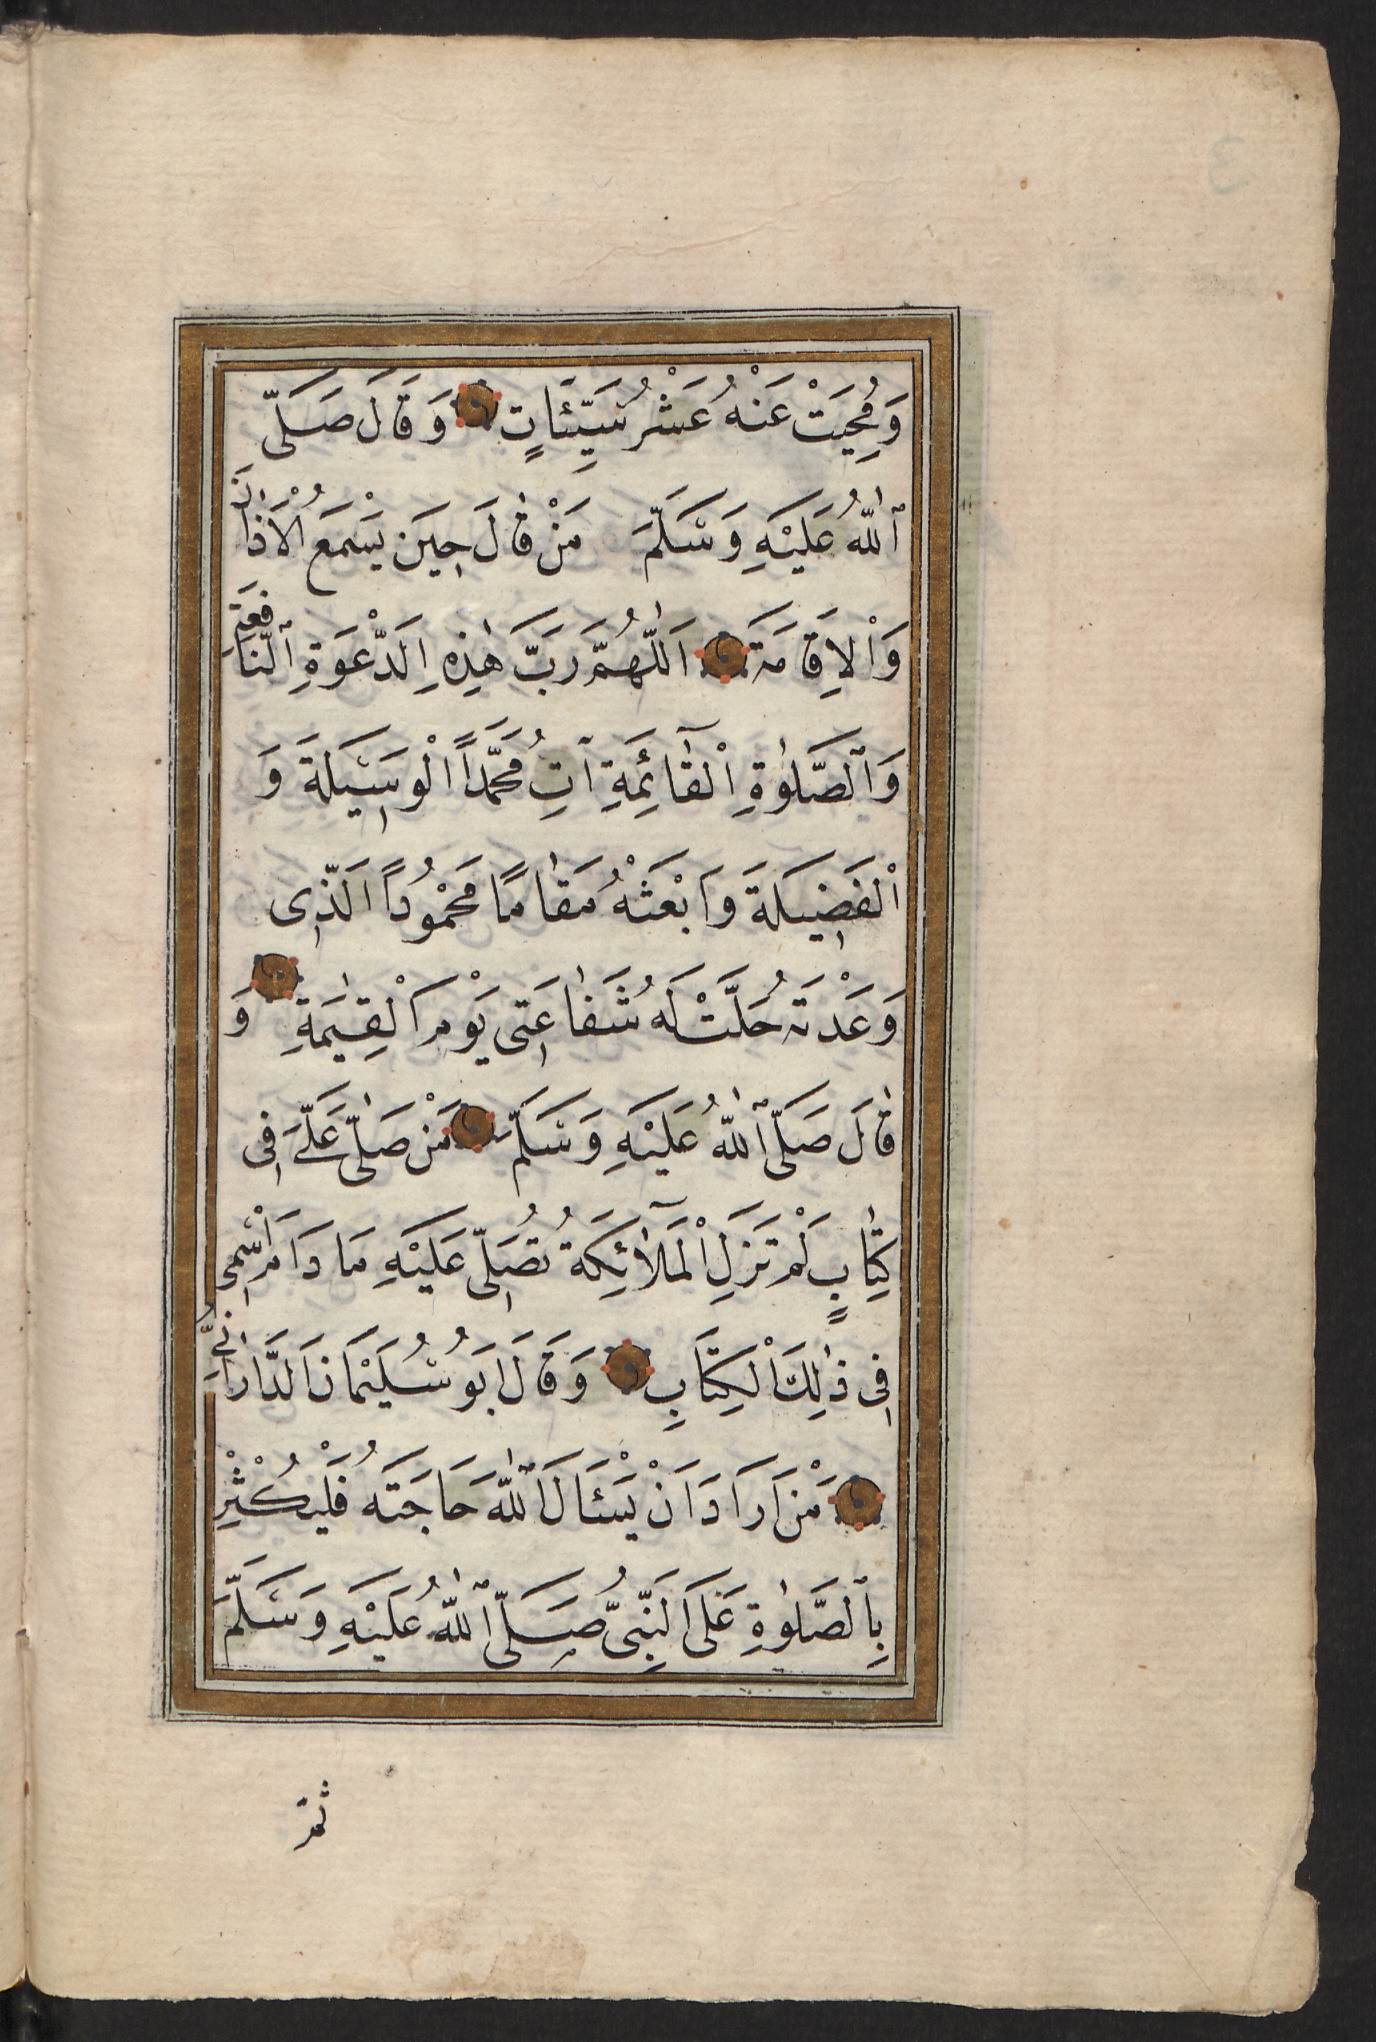 وَمُحِيَتْ عَنْهُ عَشْرُ سَيِّئَاتٍ وَقَالَ صَلَّى
ٱللّٰهُ عَلَيْهِ وَسَلَّمَ مَنْ قٰالَ حِينَ يَسْمَعُ الْاَذٰانَ
وَالْاِقَامَةَ اَللّٰهُمَّ رَبَّ هٰذِهِ الدَّعْوَةِ ٱلنَّافِعَةِ
وَٱلصَّلٰوةِ الْقٰٓائِمَةِ آتِ مُحَمَّداً الْوَسِيلَةَ وَ
الْفَضِيلَةَ وَابْعَثْهُ مَقٰامًا مَحْمُودًا الَّذِى
وَعَدْتَهُ حَلَّتْ لَهُ شَفٰاعَتِى يَوْمَ الْقِيٰمَةِ وَ
قٰالَ صَلَّى ٱللّٰهُ عَلَيْهِ وَسَلَّمَ مَنْ صَلّٰى عَلَىَّ فِى
كِتٰابٍ لَمْ تَزَلِ الْمَلَآئِكَةُ تُصَلِّى عَلَيْهِ مَا دَامَ اسْمِى
فِى ذٰلِكَ الْكِتَابِ وَقَالَ اَبُو سُلَيْمَانَ الدَّارَانِىُّ
مَنْ اَرَادَ اَنْ يَسْئَالَ ٱللّٰهَ حَاجَتَهُ فَلْيُكْثِرْ
بِالصَّلٰوةِ عَلَى النَّبِىِّ صَلَّى ٱللّٰهُ عَلَيْهِ وَسَلَّمَ
ثم
3